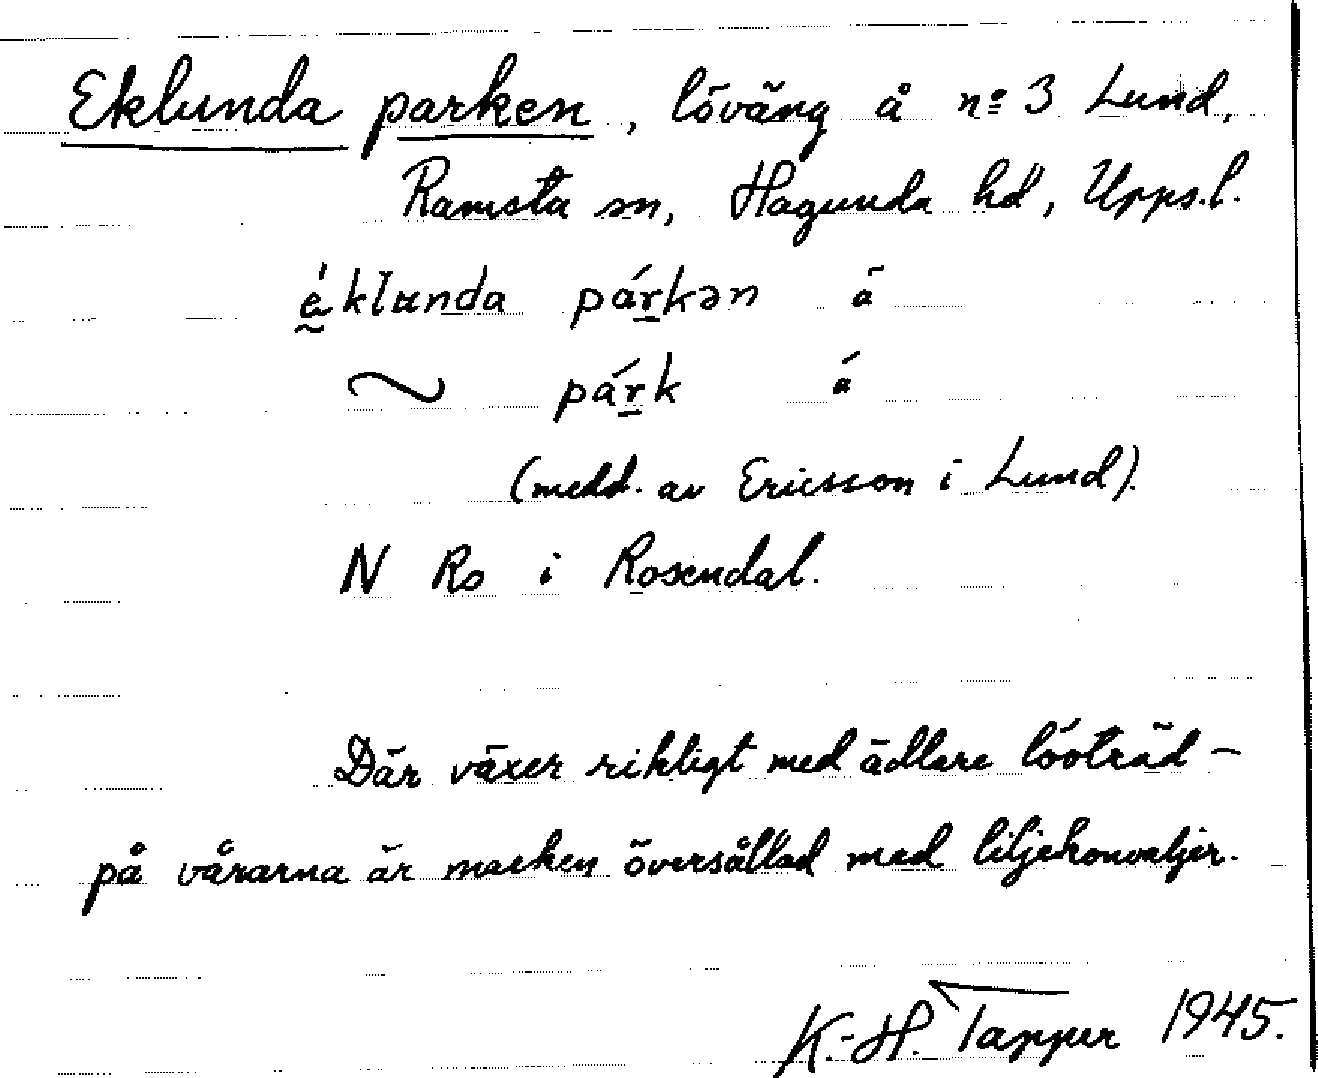 Eklunda parken, löväng å nº 3 Lund,
Ramsta sn, Hagunda hd, Upps.l.
ḛ́klunda párkən ā
~ párk á
(medd. av Ericsson i Lund).
N Ro i Rosendal.
Där växer rikligt med ädlare lövträd –
på vårarna är marken översållad med liljekonvaljer.
K.-H. Tapper 1945.